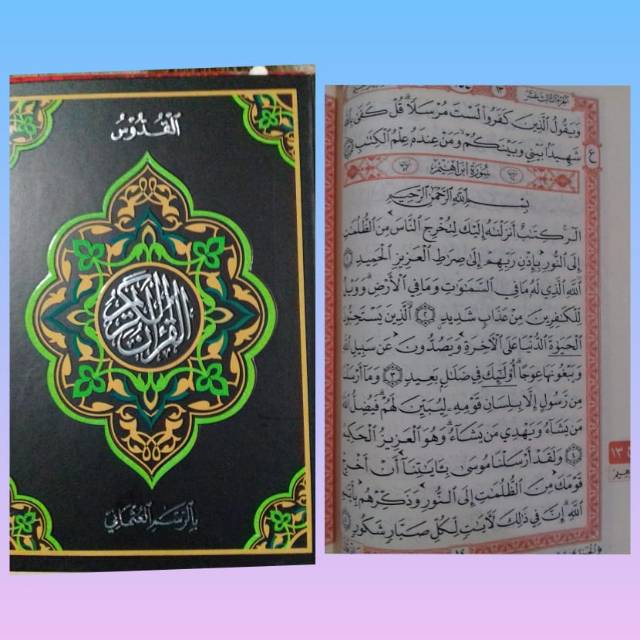 الْقُدُّوسُ
القرآن الكريم
بِالرَّسْمِ الْعُثْمَانِيِّ
وَيَقُولُ الَّذِينَ كَفَرُوا لَسْتَ مُرْسَلًا قُلْ كَفَىٰ
شَهِيدًا بَيْنِي وَبَيْنَكُمْ وَمَنْ عِندَهُ عِلْمُ الْكِتَٰبِ
سُورَةُ إِبْرَاهِيمَ
بِسْمِ اللَّهِ الرَّحْمَٰنِ الرَّحِيمِ
الٓر كِتَٰبٌ أَنزَلْنَٰهُ إِلَيْكَ لِتُخْرِجَ النَّاسَ مِنَ الظُّلُمَٰتِ
إِلَى النُّورِ بِإِذْنِ رَبِّهِمْ إِلَىٰ صِرَٰطِ الْعَزِيزِ الْحَمِيدِ
اللَّهِ الَّذِي لَهُ مَا فِي السَّمَٰوَٰتِ وَمَا فِي الْأَرْضِ
لِّلْكَٰفِرِينَ مِنْ عَذَابٍ شَدِيدٍ ٢ الَّذِينَ
الْحَيَوٰةَ الدُّنْيَا عَلَى الْأَخِرَةِ وَيَصُدُّونَ عَن سَبِيلِ
وَيَبْغُونَهَا عِوَجًا أُولَٰئِكَ فِي ضَلَٰلٍ بَعِيدٍ ٣ وَمَا
مِن رَّسُولٍ إِلَّا بِلِسَانِ قَوْمِهِ لِيُبَيِّنَ لَهُمْ فَيُضِلُّ
مَن يَشَاءُ وَيَهْدِي مَن يَشَاءُ وَهُوَ الْعَزِيزُ
٤ وَلَقَدْ أَرْسَلْنَا مُوسَىٰ بِـَٔايَٰتِنَا أَنْ أَخْرِجْ
قَوْمَكَ مِنَ الظُّلُمَٰتِ إِلَى النُّورِ وَذَكِّرْهُم
اللَّهِ إِنَّ فِي ذَٰلِكَ لَأَيَٰتٍ لِّكُلِّ صَبَّارٍ شَكُورٍ
١٣